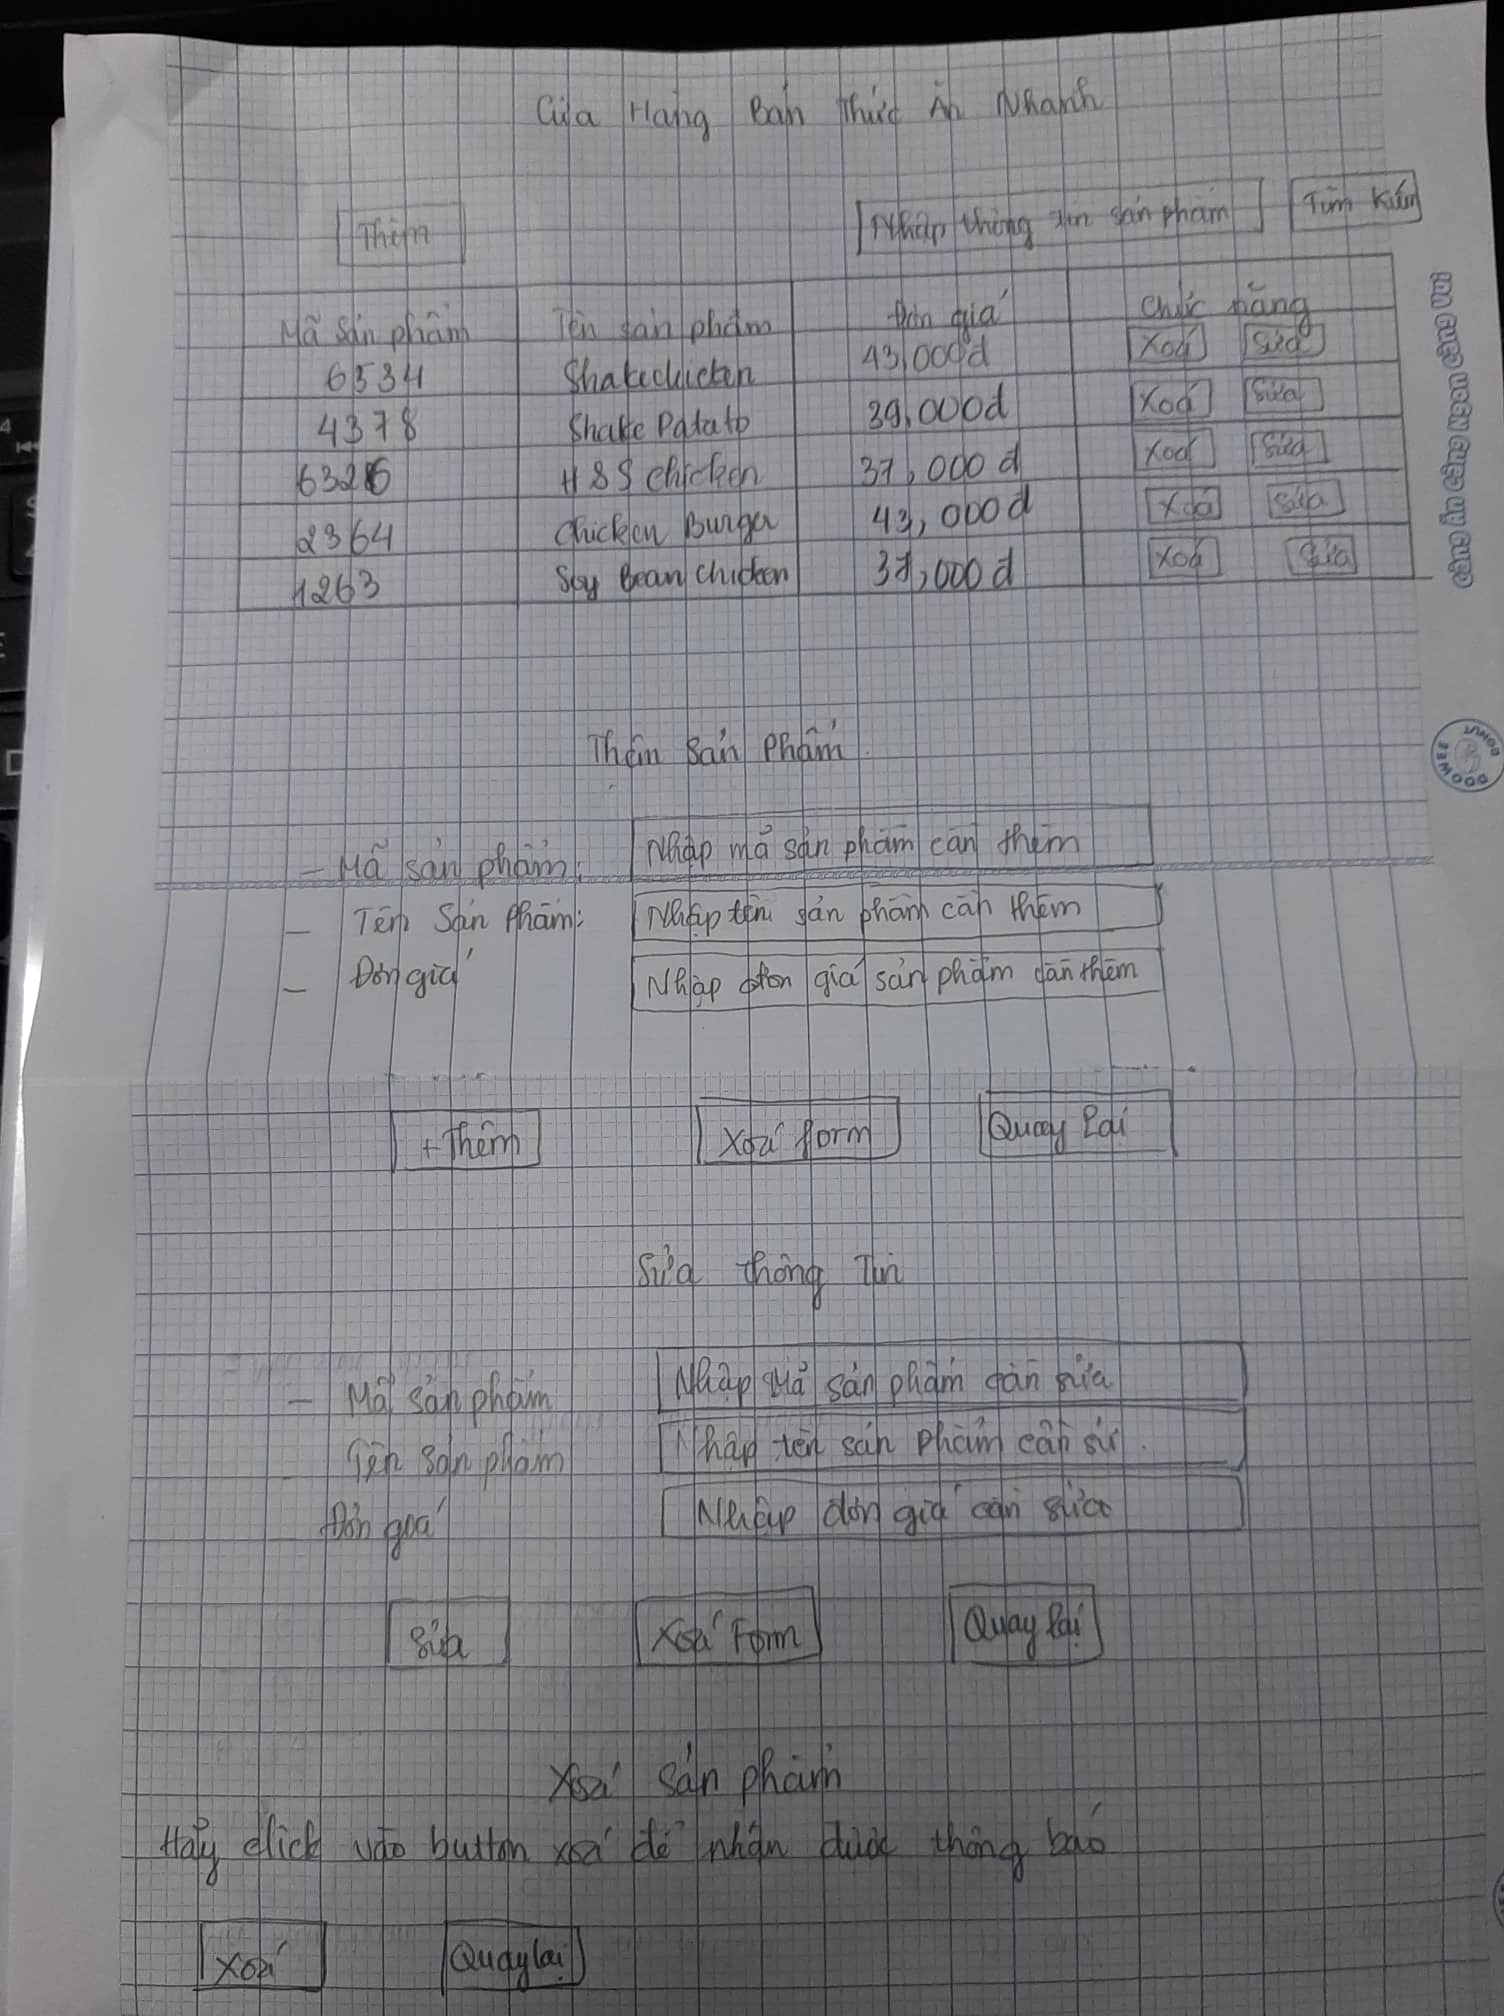 Cửa Hàng Bán Thức Ăn Nhanh
Thêm Nhập thông tin sản phẩm Tìm kiếm
Mã sản phẩm Tên sản phẩm Đơn giá Chức năng
6534 Shakechicken 43,000đ Xoá Sửa
4378 Shake Patato 39,000đ Xoá Sửa
6326 H&S chicken 37,000đ Xoá Sửa
2364 Chicken Burger 43,000đ Xoá Sửa
1263 Soy Bean chicken 37,000đ Xoá Sửa
Thêm Sản Phẩm
- Mã sản phẩm: Nhập mã sản phẩm cần thêm
- Tên Sản Phẩm: Nhập tên sản phẩm cần thêm
- Đơn giá Nhập đơn giá sản phẩm cần thêm
+ Thêm Xoá form Quay lại
Sửa Thông Tin
- Mã sản phẩm Nhập mã sản phẩm cần sửa
- Tên sản phẩm Nhập tên sản phẩm cần sử
Đơn goá Nhập đơn giá cần sửa
Sửa Xoá Form Quay lại
Xoá sản phẩm
Hãy click vào button xoá để nhận được thông báo
Xoá Quay lại